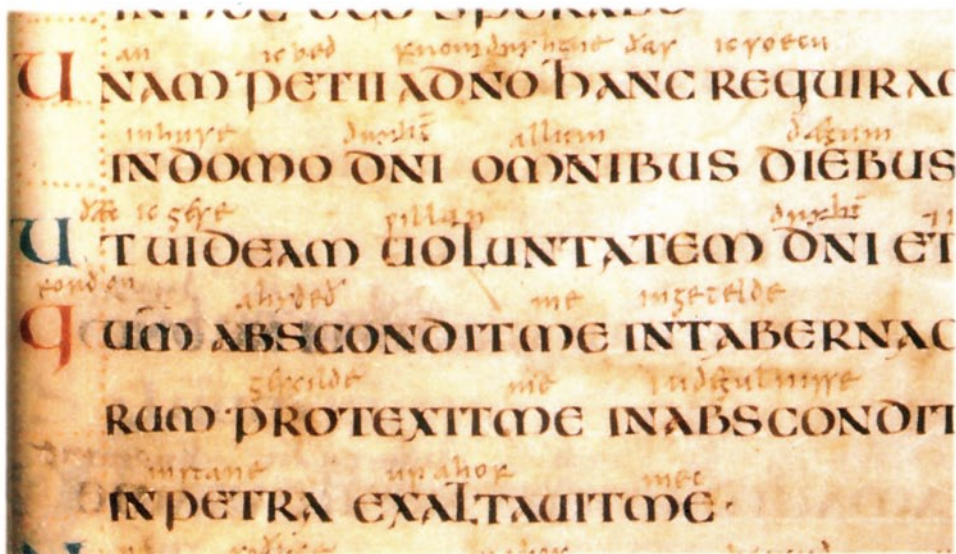 IN HOC EGO SPERABO
an ic bed from dryhtne ðas ic soecu
UNAM PETII A DNO HANC REQUIRA
in huse dryht̄ allum dægum
IN DOMO DNI OMNIBUS DIEBUS
ðæt ic gese willan dryht̄
UT UIDEAM UOLUNTATEM DNI ET
fordon ahyded me in getelde
QUM ABSCONDIT ME IN TABERNAC
gescilde me in degulnisse
RUM PROTEXIT ME IN ABSCONDIT
in stane up ahof mec
IN PETRA EXALTAUIT ME·